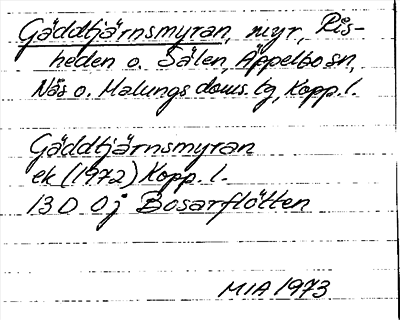 Gäddtjärnsmyran, myr, Ris-
heden o. Sälen, Äppelbo sn,
Nås o. Malungs doms. lg, Kopp. l.
Gäddtjärnsmyran
ek (1972) Kopp. l.
13 D 0j Bosarflötten
MIA 1973